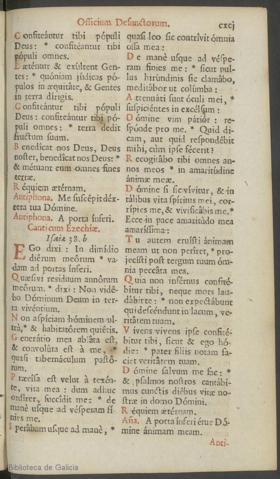 Officium Defunctorum.
cxcj
Confiteántur tibi pópuli
Deus: * confiteántur tibi
pópuli omnes.
Læténtur & exúltent Gen-
tes: * quóniam júdicas pó-
pulos in æquitáte, & Gentes
in terra dírigis.
Confiteántur tibi pópuli
Deus: confiteántur tibi pó-
puli omnes: * terra dedit
fructum suum.
Benedícat nos Deus, Deus
noster, benedícat nos Deus: *
& métuant eum omnes fines
terræ.
Réquiem ætérnam.
Antiphona. Me suscépit déx-
tera tua Dómine.
Antiphona. A porta ínferi.
Canticum Ezechiæ.
Isaiæ 38. b
EGo dixi: In dimídio
diérum meórum * va-
dam ad portas ínferi.
Quæsívi resíduum annórum
meórum. * dixi: Non vidé-
bo Dóminum Deum in ter-
ra vivéntium.
Non aspíciam hóminem ul-
trà, * & habitatórem quiétis.
Generátio mea ablàta est,
& convolúta est à me, *
quasi tabernáculum pastó-
rum.
Præcísa est velut à texén-
te, vita mea: dum adhuc
ordírer, succídit me: * de
manè usque ad vésperam fí-
nies me.
Sperábam usque ad manè, *
quasi leo sic contrívit ómnia
ossa mea:
De manè usque ad véspe-
ram fínies me: * sicut pul-
lus hirúndinis sic clamábo,
meditábor ut colúmba:
Attenuáti sunt óculi mei, *
suspiciéntes in excélsum:
Dómine vim pátior: re-
spónde pro me. * Quid dí-
cam, aut quid respondébit
mihi, cùm ipse fécerit?
Recogitábo tibi omnes an-
nos meos * in amaritúdine
ánimæ meæ.
Dómine si sic vívitur, & in
tálibus vita spíritus mei, cor-
rípies me, & vivificábis me. *
Ecce in pace amaritúdo mea
amaríssima:
Tu autem eruísti ánimam
meam ut non períret, * pro-
jecísti post tergum tuum óm-
nia peccáta mea.
Quia non inférnus confité-
bitur tibi, neque mors lau-
dábit te: * non expectábunt
qui descéndunt in lacum, ve-
ritátem tuam.
Vivens vivens ipse confité-
bitur tibi, sicut & ego hó-
die: * pater fíliis notam fá-
ciet veritátem tuam.
Dómine salvum me fac: *
& psalmos nostros cantábi-
mus cunctis diébus vitæ no-
stræ in domo Dómini.
Réquiem ætérnam.
Aña. A porta ínferi érue Dó-
mine ánimam meam.
Anti-
Biblioteca de Galicia